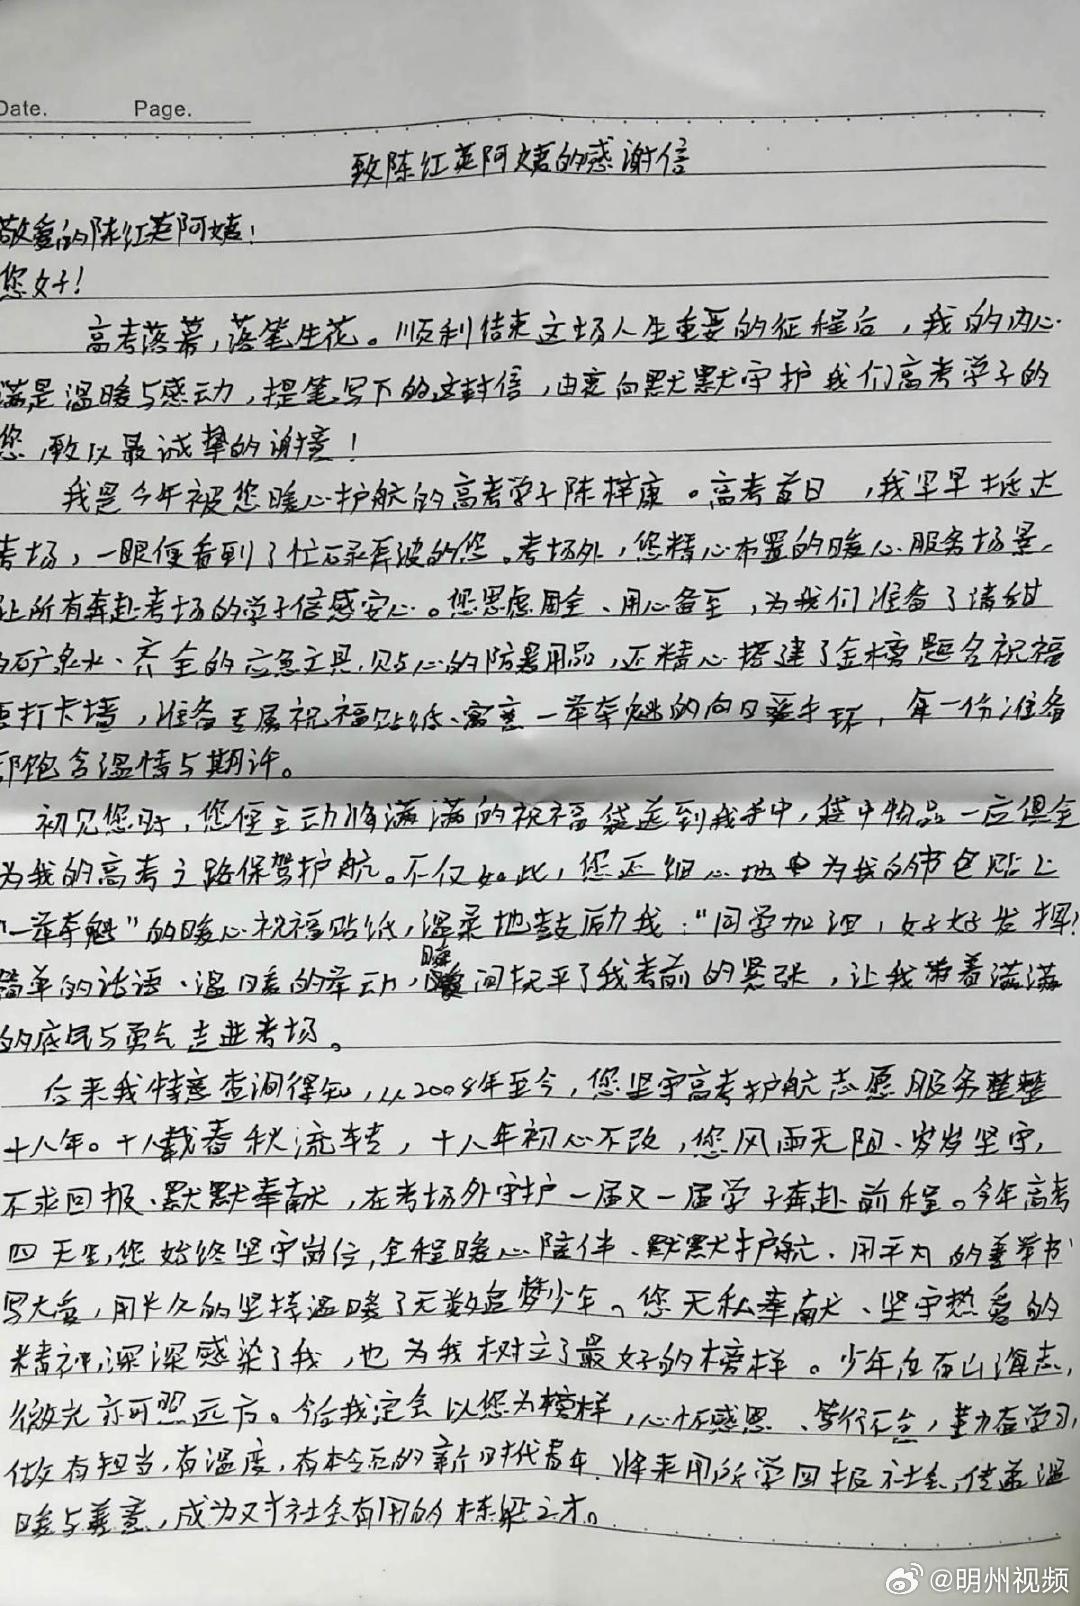 Date. Page.
致陈红英阿姨的感谢信
敬爱的陈红英阿姨！
您好！
高考落幕，落笔生花。顺利结束这场人生重要的征程后，我的内心
满是温暖与感动，提笔写下的这封信，由衷向默默守护我们高考学子的
您，致以最诚挚的谢意！
我是今年被您暖心护航的高考学子陈梓康。高考首日，我早早抵达
考场，一眼便看到了忙碌奔波的您。考场外，您精心布置的暖心服务场景，
让所有奔赴考场的学子倍感安心。您思虑周全、用心备至，为我们准备了清甜
的矿泉水、齐全的应急文具、贴心的防暑用品，还精心搭建了金榜题名祝福
打卡墙，准备专属祝福贴纸、寓意一举夺魁的向日葵手环，每一份准备
都饱含温情与期许。
初见您时，您便主动将满满的祝福袋送到我手中，袋中物品一应俱全
为我的高考之路保驾护航。不仅如此，您还细心地为我的书包贴上
“一举夺魁”的暖心祝福贴纸，温柔地鼓励我：“同学加油，好好发挥！
简单的话语、温暖的举动，瞬间抚平了我考前的紧张，让我带着满满
的底气与勇气走进考场。
后来我特意查询得知，从2008年至今，您坚守高考护航志愿服务整整
十八年。十八载春秋流转，十八年初心不改，您风雨无阻、岁岁坚守，
不求回报、默默奉献，在考场外守护一届又一届学子奔赴前程。今年高考
四天里，您始终坚守岗位，全程暖心陪伴、默默护航，用平凡的善举书
写大爱，用长久的坚持温暖了无数追梦少年。您无私奉献、坚守热爱的
精神，深深感染了我，也为我树立了最好的榜样。少年应有山海志，
微光亦可照远方。今后我定会以您为榜样，心怀感恩、笃行不怠，努力学习，
做有担当，有温度，有本领的新时代青年，将来用所学回报社会，传递温
暖与善意，成为对社会有用的栋梁之才。
@明州视频